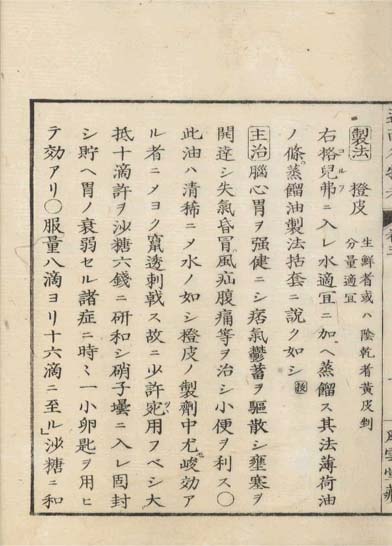 製法 橙皮 生鮮者或ハ陰乾者黄皮剉
分量適宜
右榕兒弗ニ入レ水適宜ニ加ヘ蒸餾ス其法薄荷油
ノ條蒸餾油製法括套ニ説ク如シ
主治 腦心胃ヲ强健ニシ痞氣鬱蓄ヲ驅散シ壅塞ヲ
開達シ失氣昏冒風疝腹痛等ヲ治シ小便ヲ利ス〇
此油ハ清稀ニメ水ノ如シ橙皮ノ製劑中尤峻効ア
ル者ニメヨク竄透刺戟ス故ニ少許宛用フベシ大
抵十滴許ヲ沙糖六錢ニ研和シ硝子壜ニ入レ固封
シ貯ヘ胃ノ衰弱セル諸症ニ時〻一小卵匙ヲ用ヒ
テ効アリ〇服量八滴ヨリ十六滴ニ至ル」沙糖ニ和